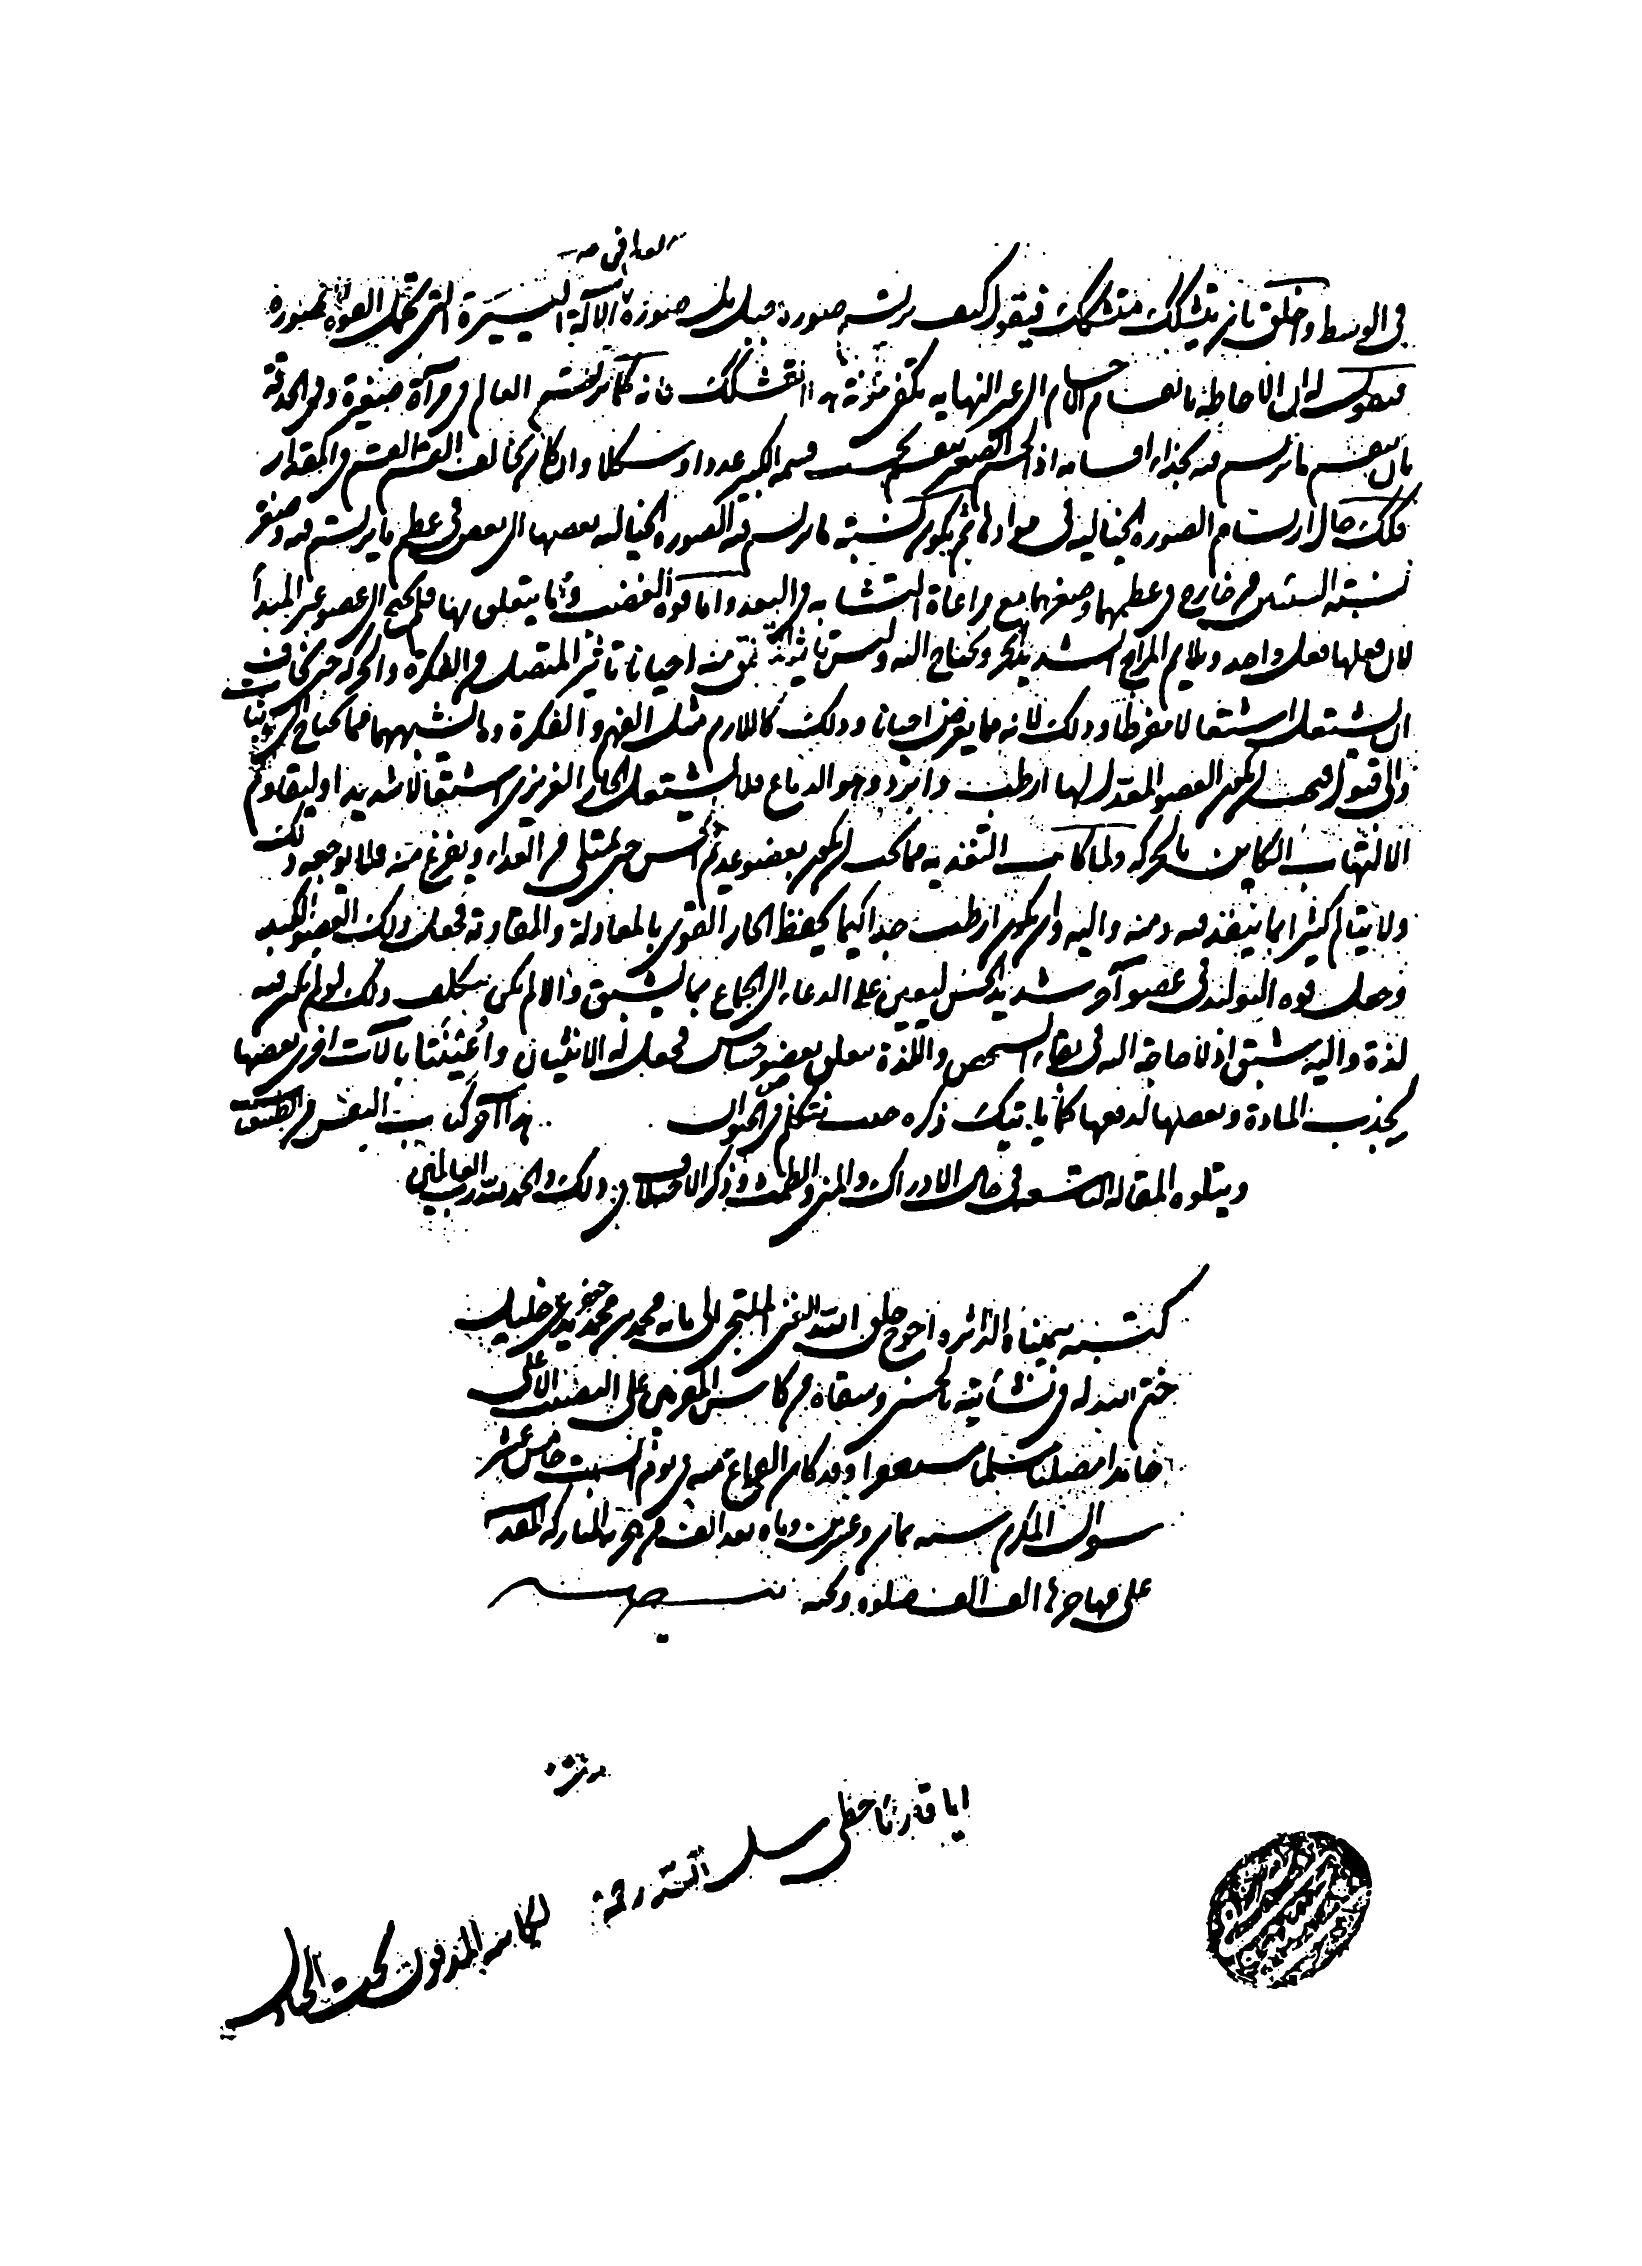 في الوسط واخلق بان يتشكك متشكك فيقول كيف يرتسم صورة جبل بل صورة العالم في الآلة اليسيرة التي تحمل القوة المصورة
فنقول له ان الاحاطة بانقسام الاجسام الى غير النهاية يكفي مؤنة هذا التشكك فانه كما يرتسم العالم في مرآة صغيرة وفي الحدقة
بان ينقسم ما يرتسم فيه بحذاء اقسامه اذ الجسم الصغير ينقسم بحسب قسمة الكبير عددا وشكلا وان كان يخالف القسم القسم في المقدار
فكذلك حال ارتسام الصورة الخيالية في موادها ثم يكون نسبة ما يرتسم فيه الصورة الخيالية بعضها الى بعض في عظم ما يرتسم فيه وصغر
نسبة الشيئين من خارج في عظمهما وصغرهما مع مراعاة التشابه في البعد واما قوة الغضب وما يتعلق بها فلم يحتج الى عضو غير المبدأ
لان فعلها فعل واحد ويلائم المزاج الشديد الحر ويحتاج اليه وليس تأثير المتفق منه احيانا تأثير المتصل من الفكرة والحركة حتى يخاف
ان يشتعل اشتعالا مفرطا وذلك لانه مما يعرض احيانا وذلك كاللازم مثل الفهم والفكرة وما يشبههما مما يحتاج الى ثبات
والى قبول فيجب ان يكون العضو المعد لها ارطب وابرد وهو الدماغ فلا يشتعل الحار الغريزي اشتعالا شديدا وليقاوم
الالتهاب الكاين بالحركة ولما كانت التغذية مما يجب ان يكون بعضو عديم الحس حتى يمتلي من الغذاء ويفرغ منه فلا يوجعه ذلك
ولا يتألم كثيرا بما ينفذ فيه ومنه واليه وان يكون ارطب جدا كيما يحفظ الحار القوي بالمعادلة والمقاومة فجعل ذلك العضو الكبد
وجعل قوة التوليد في عضو آخر شديد الحس ليعين على الدعاء الى الجماع بما يشبق والا لم يكن يتكلف ذلك لو لم يكن فيه
لذة واليه شبق اذ لا حاجة اليه في بقاء الشخص واللذة يتعلق بعضو حساس فجعل له الانثيان واعينتا بآلات اخرى بعضها
لجذب المادة وبعضها لدفعها كما يأتيك ذكره حيث نتكلم في الحيوان هذا آخر كتاب النفس من الطبيعيات
ويتلوه المقالة التاسعة في حال الادراك والمني والطمث وذكر الاختلاف في ذلك والحمد لله رب العالمين
كتبه بيمناه الداثرة احوج خلق الله الغني الملتجى الى بابه محمد بن محمد جعفر خليل
ختم الله له في نشأتيه بالحسنى وسقاه من كاس المقربين على النصيب الاعلى
حامدا مصليا مسلما مستغفرا وقد كان الفراغ منه في يوم السبت خامس عشر
شوال المكرم سنة ثمان وعشرين وماه بعد الف من الهجرة المباركة المقدسة
على مهاجرها الف الف صلوة وتحية
ايا قارئا خطي سل الله رحمة
لكاتبه المدفون تحت الجنادل